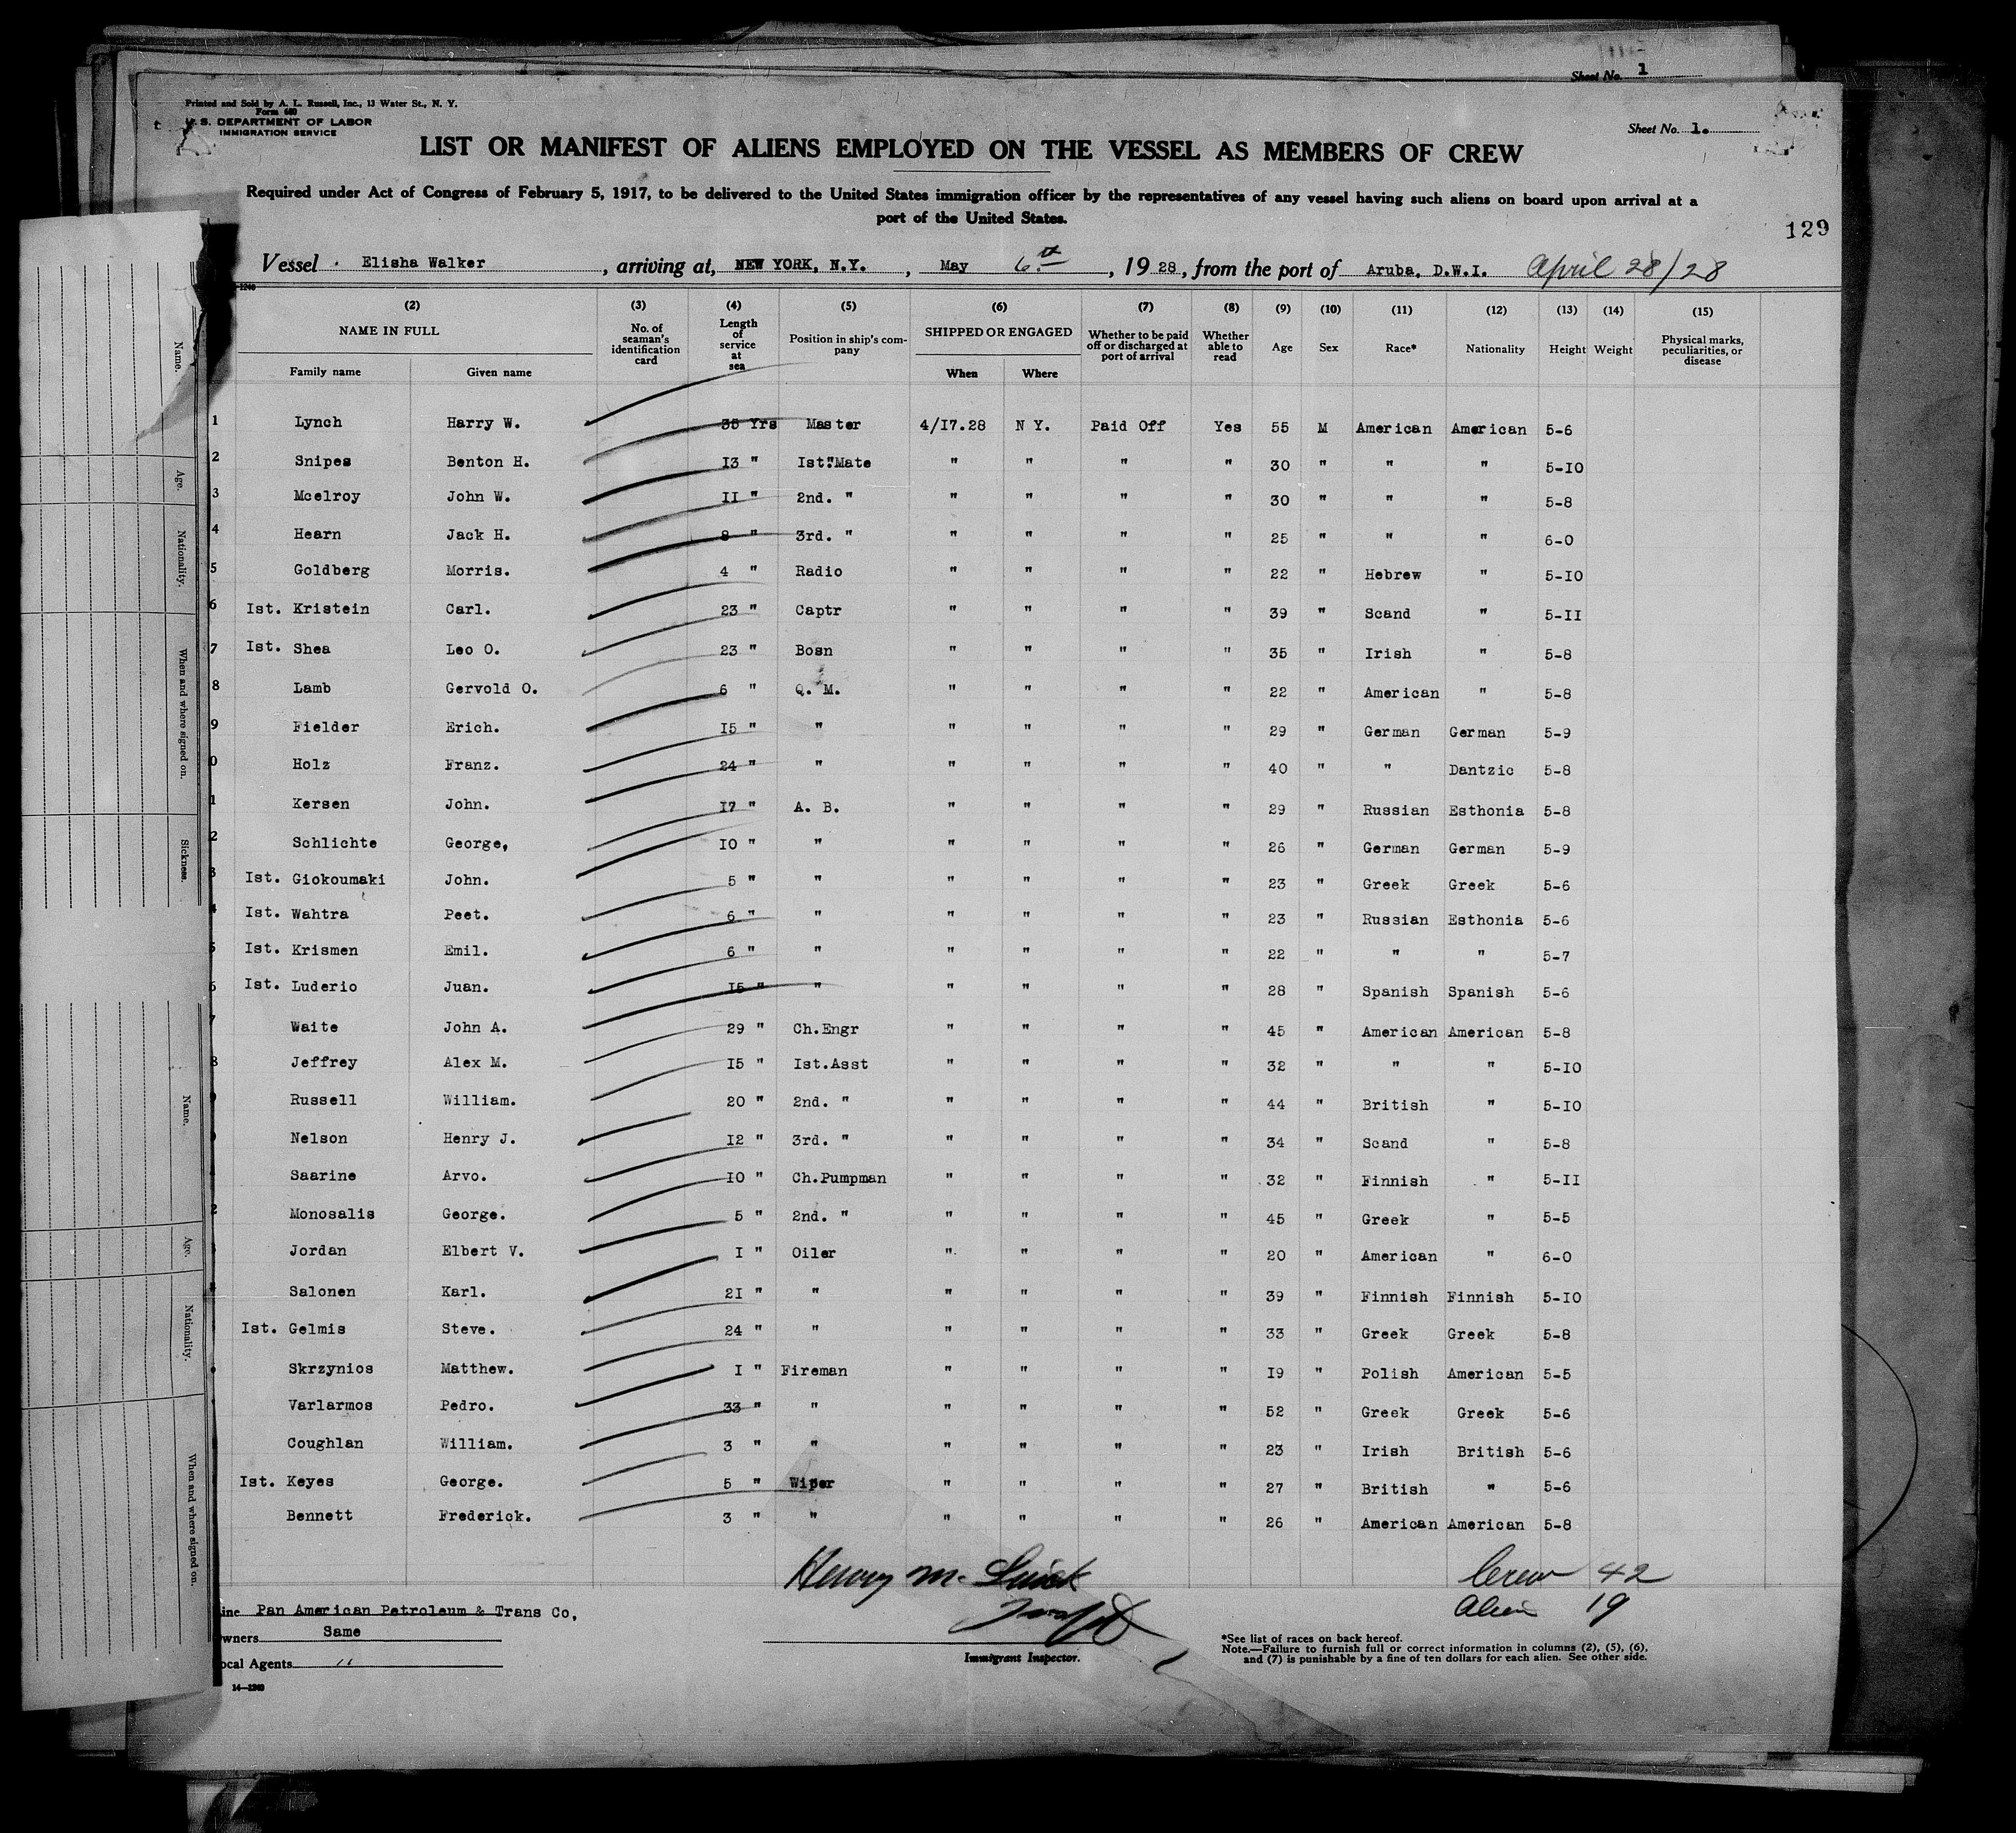 Sheet No. 1
Printed and Sold by A. L. Russell, Inc., 13 Water St., N. Y.
Form 680
U. S. DEPARTMENT OF LABOR
IMMIGRATION SERVICE
Sheet No. 1.
LIST OR MANIFEST OF ALIENS EMPLOYED ON THE VESSEL AS MEMBERS OF CREW
Required under Act of Congress of February 5, 1917, to be delivered to the United States immigration officer by the representatives of any vessel having such aliens on board upon arrival at a
port of the United States.
129
Vessel Elisha Walker, arriving at, NEW YORK, N.Y., May 6th, 1928, from the port of Aruba, D.W.I. April 28/28
(2) (3) (4) (5) (6) (7) (8) (9) (10) (11) (12) (13) (14) (15)
NAME IN FULL No. of seaman's identification card Length of service at sea Position in ship's company SHIPPED OR ENGAGED Whether to be paid off or discharged at port of arrival Whether able to read Age Sex Race* Nationality Height Weight Physical marks, peculiarities, or disease
Family name Given name When Where
1 Lynch Harry W. 35 Yrs Master 4/17.28 N Y. Paid Off Yes 55 M American American 5-6
2 Snipes Benton H. 13 " Ist. Mate " " " " 30 " " " 5-10
3 Mcelroy John W. II " 2nd. " " " " " 30 " " " 5-8
4 Hearn Jack H. 8 " 3rd. " " " " " 25 " " " 6-0
5 Goldberg Morris. 4 " Radio " " " " 22 " Hebrew " 5-10
6 Ist. Kristein Carl. 23 " Captr " " " " 39 " Scand " 5-II
7 Ist. Shea Leo O. 23 " Bosn " " " " 35 " Irish " 5-8
8 Lamb Gervold O. 6 " Q. M. " " " " 22 " American " 5-8
9 Fielder Erich. 15 " " " " " " 29 " German German 5-9
0 Holz Franz. 24 " " " " " " 40 " " Dantzic 5-8
1 Kersen John. 17 " A. B. " " " " 29 " Russian Esthonia 5-8
2 Schlichte George, 10 " " " " " " 26 " German German 5-9
3 Ist. Giokoumaki John. 5 " " " " " " 23 " Greek Greek 5-6
4 Ist. Wahtra Peet. 6 " " " " " " 23 " Russian Esthonia 5-6
5 Ist. Krismen Emil. 6 " " " " " " 22 " " " 5-7
6 Ist. Luderio Juan. 15 " " " " " " 28 " Spanish Spanish 5-6
7 Waite John A. 29 " Ch.Engr " " " " 45 " American American 5-8
8 Jeffrey Alex M. 15 " Ist.Asst " " " " 32 " " " 5-10
Russell William. 20 " 2nd. " " " " " 44 " British " 5-10
Nelson Henry J. 12 " 3rd. " " " " " 34 " Scand " 5-8
Saarine Arvo. 10 " Ch.Pumpman " " " " 32 " Finnish " 5-II
2 Monosalis George. 5 " 2nd. " " " " " 45 " Greek " 5-5
Jordan Elbert V. I " Oiler " " " " 20 " American " 6-0
Salonen Karl. 21 " " " " " " 39 " Finnish Finnish 5-10
Ist. Gelmis Steve. 24 " " " " " " 33 " Greek Greek 5-8
Skrzynios Matthew. I " Fireman " " " " 19 " Polish American 5-5
Varlarmos Pedro. 33 " " " " " " 52 " Greek Greek 5-6
Coughlan William. 3 " " " " " " 23 " Irish British 5-6
Ist. Keyes George. 5 " Wiper " " " " 27 " British " 5-6
Bennett Frederick. 3 " " " " " " 26 " American American 5-8
Henry M.
Crew 42
Alien 19
ine Pan American Petroleum & Trans Co,
wners Same
ocal Agents "
Immigrant Inspector.
*See list of races on back hereof.
Note.—Failure to furnish full or correct information in columns (2), (5), (6),
and (7) is punishable by a fine of ten dollars for each alien. See other side.
14—1240
Name.
Age.
Nationality.
When and where signed on.
Sickness.
Name.
Age.
Nationality.
When and where signed on.